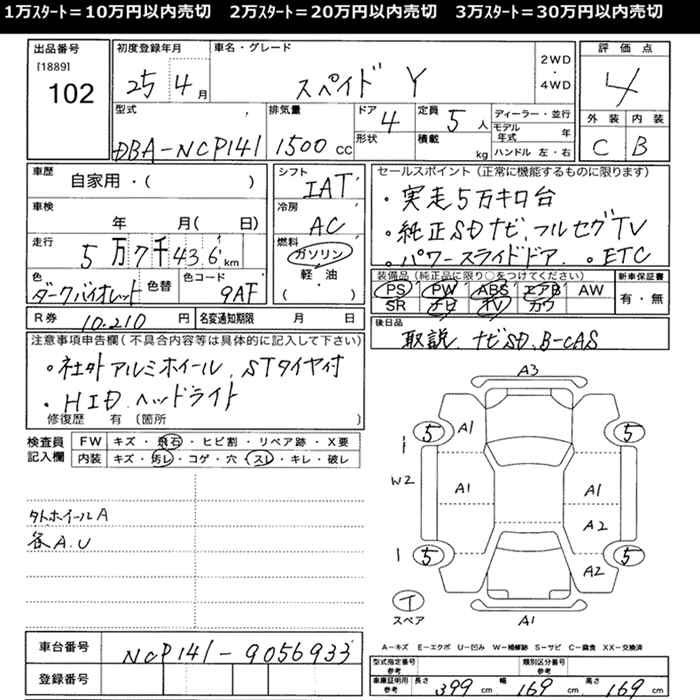 1万ｽﾀｰﾄ＝10万円以内売切　2万ｽﾀｰﾄ＝20万円以内売切　3万ｽﾀｰﾄ＝30万円以内売切
出品番号
[1889]
102
初度登録年月
25年4月
車名・グレード
スペイド Y
2WD
・
4WD
評価点
4
外装 内装
C B
型式
DBA-NCP141
排気量
1500 CC
ドア
4
形状
定員
5人
積載
kg
ディーラー・並行
モデル年式 年
ハンドル 左・右
車歴
自家用・( )
車検
年 月( 日)
走行
5万7千436km
色
ダークバイオレット
色替
色コード
9AF
シフト
IAT
冷房
AC
燃料
ガソリン
軽・油
( )
セールスポイント（正常に機能するものに限ります）
・実走5万キロ台
・純正SDナビ、フルセグTV
・パワースライドドア ・ETC
装備品（純正品に限り○をつけてください）
PS PW ABS エアB AW
SR ナビ TV カワ
新車保証書
有・無
R券 10.210 円
名変通知期限 月 日
後日品
取説、ナビSD、B-CAS
注意事項申告欄（不具合内容等は具体的に記入して下さい）
・社外アルミホイール、STタイヤ付
・HIDヘッドライト
修復歴 有（箇所
検査員記入欄
FW キズ・飛石・ヒビ割・リペア跡・X要
内装 キズ・汚レ・コゲ・穴・スレ・キレ・破レ
外ホイールA
各A.U
A3
5 A1 5
W2
A1 A1
A2
5 A2 5
T
スペア
A1
A－キズ E－エクボ U－凹み W－補修跡 S－サビ C－腐食 XX－交換済
車台番号
NCP141-9056933
登録番号
型式指定番号
参考
類別区分番号
参考
車庫証明用
参考
長さ 399 cm 幅 169 cm 高さ 169 cm